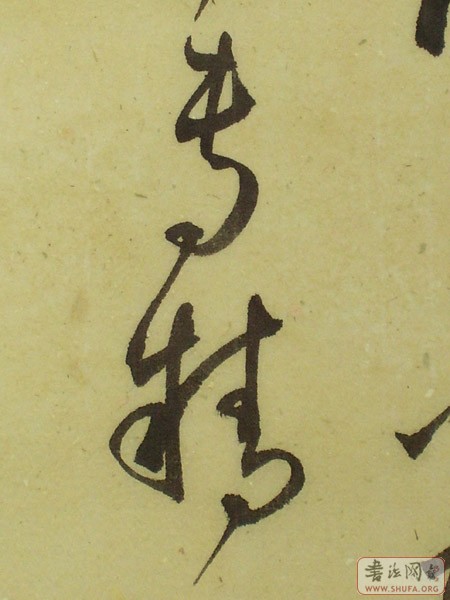 專精
書法网
WWW.SHUFA.ORG